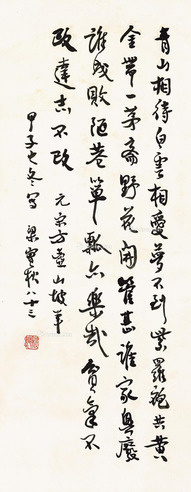 青山相待白雲相愛夢不到紫羅袍共黃
金帶一茅齋野花開管甚誰家興廢
誰成敗陋巷簞瓢亦樂哉貧氣不
改達志不改 元宋方壺山坡羊
甲子之冬寫 梁實秋 八十三